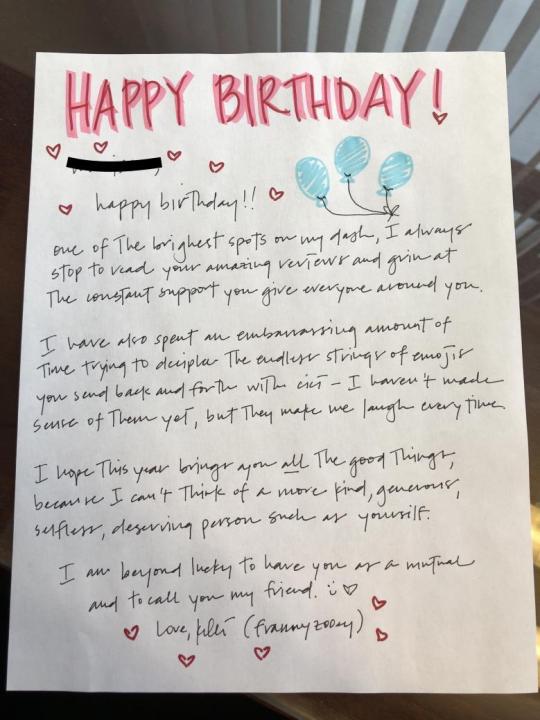 HAPPY BIRTHDAY!
happy birthday!!
one of the brighest spots on my dash, I always
stop to read your amazing reviews and grin at
the constant support you give everyone around you.
I have also spent an embarrassing amount of
time trying to decipher the endless strings of emojis
you send back and forth with cici - I haven't made
sense of them yet, but they make me laugh every time
I hope this year brings you all the good things,
because I can't think of a more kind, generous,
selfless, deserving person such as yourself.
I am beyond lucky to have you as a mutual
and to call you my friend. :) ♡
love, (frannyzooey)